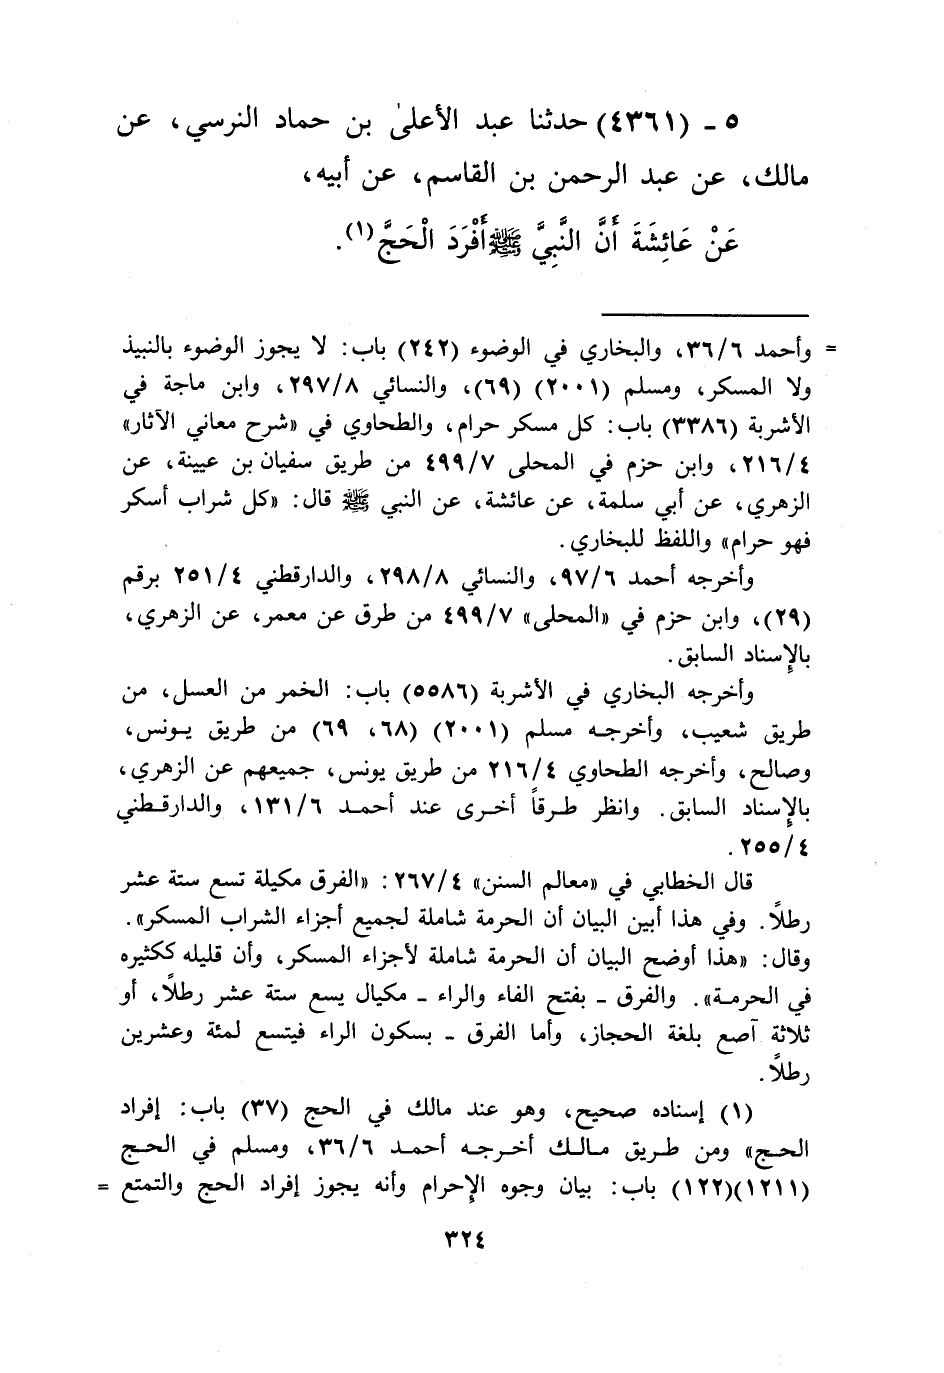 ٥ - (٤٣٦١) حدثنا عبد الأعلىٰ بن حماد النرسي، عن
مالك، عن عبد الرحمن بن القاسم، عن أبيه،
عَنْ عَائِشَةَ أَنَّ النَّبِيَّ ﷺ أَفْرَدَ الْحَجَّ(١).
= وأحمد ٣٦/٦، والبخاري في الوضوء (٢٤٢) باب: لا يجوز الوضوء بالنبيذ
ولا المسكر، ومسلم (٢٠٠١) (٦٩)، والنسائي ٢٩٧/٨، وابن ماجة في
الأشربة (٣٣٨٦) باب: كل مسكر حرام، والطحاوي في «شرح معاني الآثار»
٢١٦/٤، وابن حزم في المحلى ٤٩٩/٧ من طريق سفيان بن عيينة، عن
الزهري، عن أبي سلمة، عن عائشة، عن النبي ﷺ قال: «كل شراب أسكر
فهو حرام» واللفظ للبخاري.
وأخرجه أحمد ٩٧/٦، والنسائي ٢٩٨/٨، والدارقطني ٢٥١/٤ برقم
(٢٩)، وابن حزم في «المحلى» ٤٩٩/٧ من طرق عن معمر، عن الزهري،
بالإسناد السابق.
وأخرجه البخاري في الأشربة (٥٥٨٦) باب: الخمر من العسل، من
طريق شعيب، وأخرجه مسلم (٢٠٠١) (٦٨، ٦٩) من طريق يونس،
وصالح، وأخرجه الطحاوي ٢١٦/٤ من طريق يونس، جميعهم عن الزهري،
بالإسناد السابق. وانظر طرقاً أخرى عند أحمد ١٣١/٦، والدارقطني
٢٥٥/٤.
قال الخطابي في «معالم السنن» ٢٦٧/٤: «الفرق مكيلة تسع ستة عشر
رطلاً. وفي هذا أبين البيان أن الحرمة شاملة لجميع أجزاء الشراب المسكر».
وقال: «هذا أوضح البيان أن الحرمة شاملة لأجزاء المسكر، وأن قليله ككثيره
في الحرمة». والفرق - بفتح الفاء والراء - مكيال يسع ستة عشر رطلاً، أو
ثلاثة آصع بلغة الحجاز، وأما الفرق - بسكون الراء فيتسع لمئة وعشرين
رطلاً.
(١) إسناده صحيح، وهو عند مالك في الحج (٣٧) باب: إفراد
الحج» ومن طريق مالك أخرجه أحمد ٣٦/٦، ومسلم في الحج
(١٢١١)(١٢٢) باب: بيان وجوه الإحرام وأنه يجوز إفراد الحج والتمتع =
٣٢٤